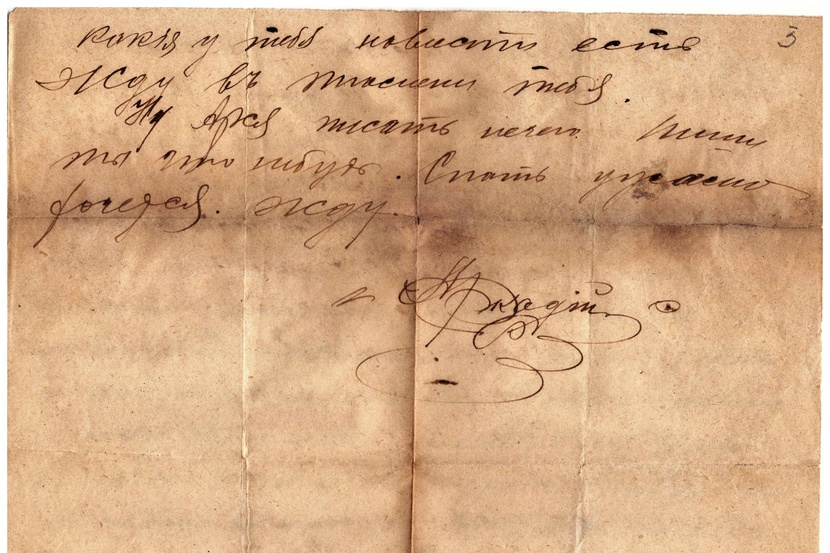 3
какія у тебя новости есть
Жду въ тебя.
Ну Аркя писать нечего Пиши
ты что нибудь. Спать ужасно
хочется. Жду.
Аркадій